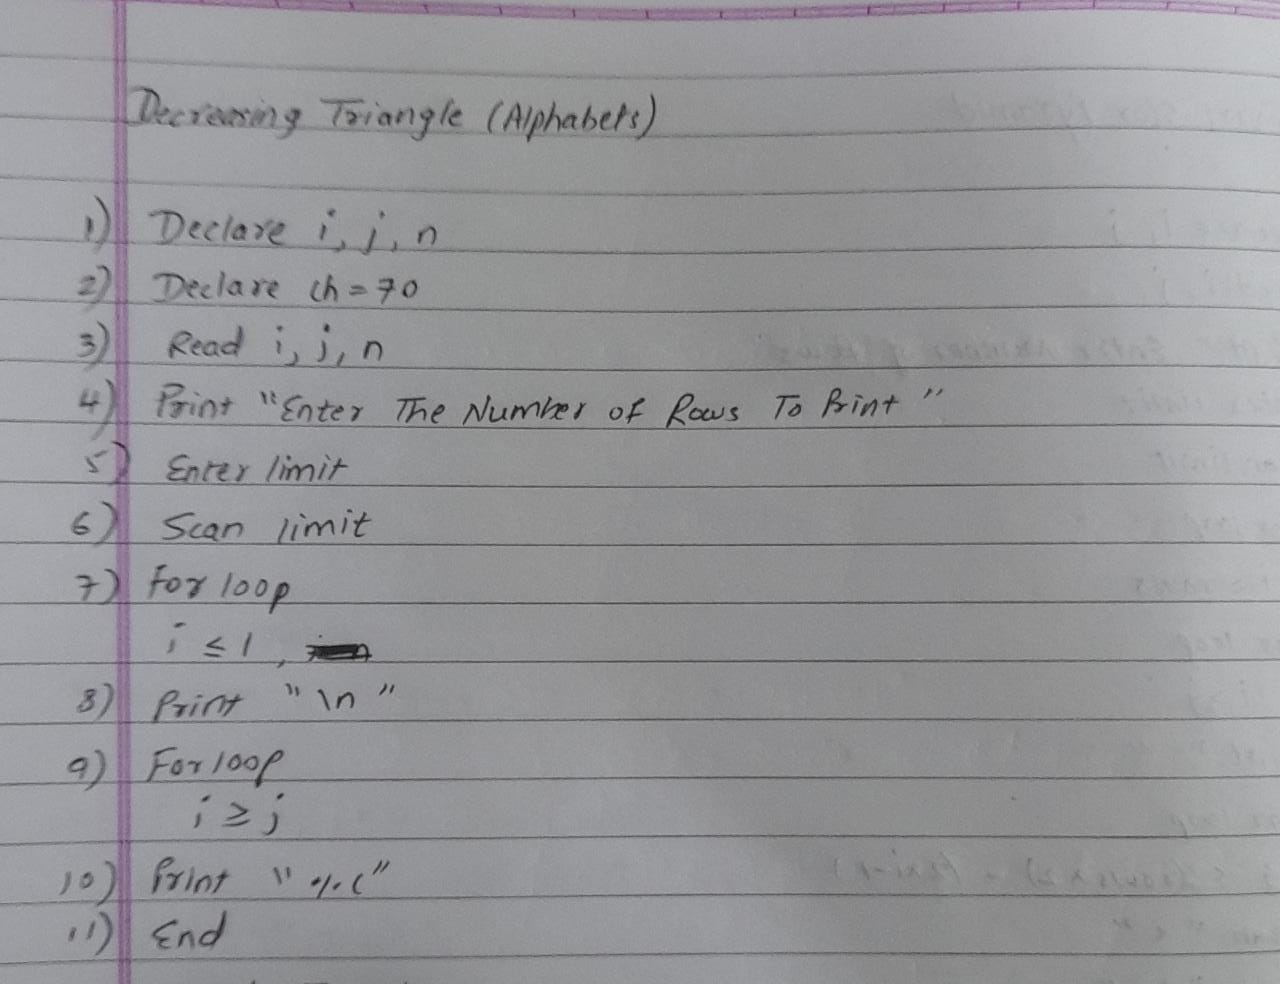 Decreasing Triangle (Alphabets)
1) Declare i, j, n
2) Declare ch = 70
3) Read i, j, n
4) Print "Enter The Number of Rows To Print"
5) Enter limit
6) Scan limit
7) For loop
i ≤ 1,
8) Print "\n"
9) For loop
i ≥ j
10) Print "%c"
11) End